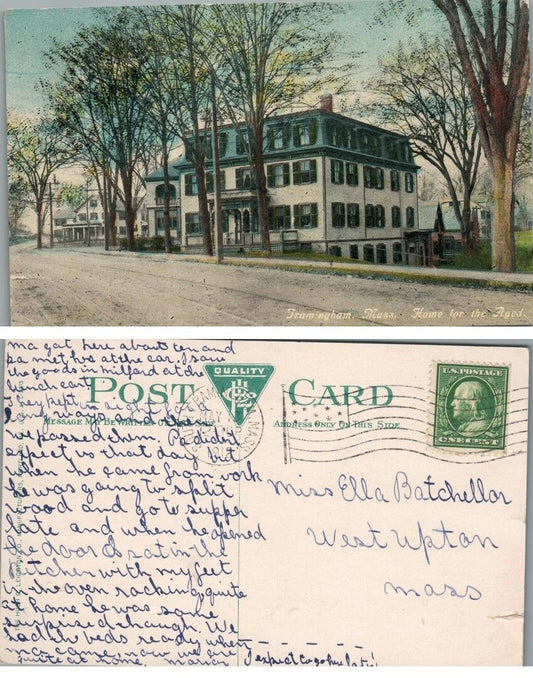 Framingham, Mass. Home for the Aged.
ma got here about ten and
pa met two at the car. I saw
the goods in milford at the
lunch cart
They kept in sight for a
long ways and then
we passed them. Pa didn't
expect us that day but
when he came from work
he was going to split
wood and go to supper
late and when he opened
the door I sat in the
kitchen with my feet
in the oven rocking, quite
at home he was some
surprised I laugh. We
had the beds ready when
ma came. now we are
quite at home. marion
I expect to go
QUALITY
POST CARD
MESSAGE MAY BE WRITTEN ON THIS SIDE
ADDRESS ONLY ON THIS SIDE
MASS.
U.S. POSTAGE
ONE CENT
Miss Ella Batchellor
West Upton
Mass